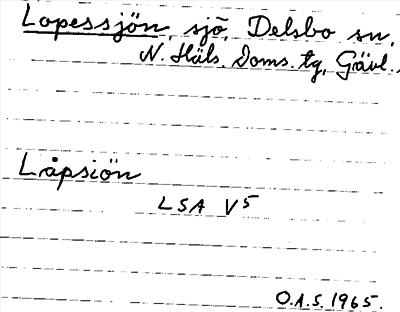 Lopessjön, sjö, Delsbo sn,
N. Häls. Doms. tg, Gävl.
Låpsiön
LSA V5
O.A.S. 1965.